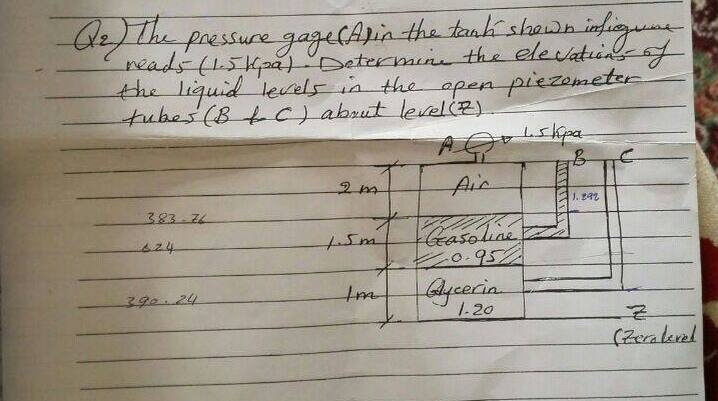 Q2) The pressure gage (A) in the tank shewn infigure
reads (1.5 Kpa). Determine the elevations of
the liquid levels in the open piezometer
tubes (B & C) about level (Z).
A 1.5 kpa
B C
2 m Air
1.292
383.76
1.5m Gasoline
624 0.95
1m Glycerin
390.24 1.20
Z
(Zero level